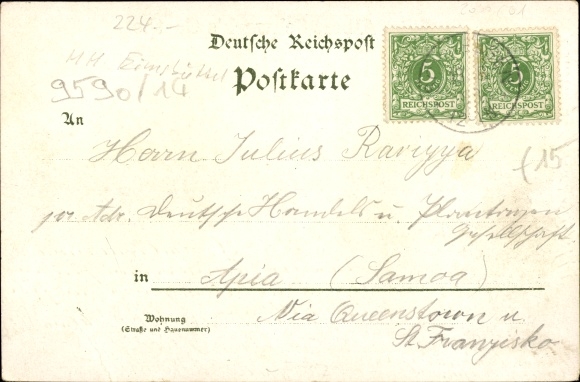 224.-
HH Eimsbüttel
9590/14
Deutsche Reichspost
Postkarte
5
REICHSPOST
5
REICHSPOST
An
Herrn Julius
(15
pr Adr. Deutsche Handels u. Plantagen
Gesellschaft
in Apia (Samoa)
Wohnung
(Straße und Hausnummer)
Via Queenstown u.
St Franzisko